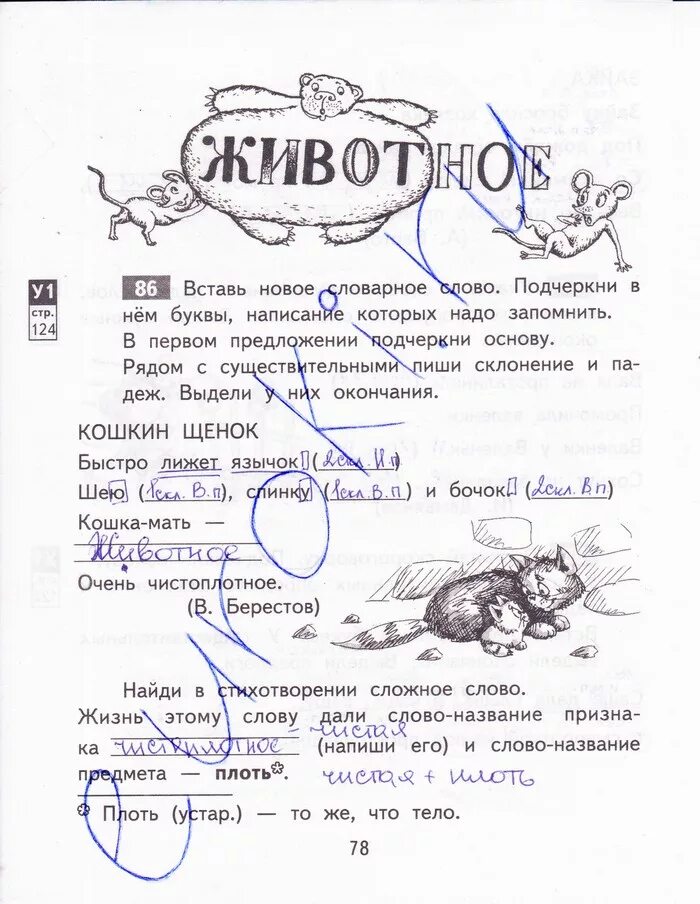 ЖИВОТНОЕ
У1
стр.
124
86 Вставь новое словарное слово. Подчеркни в
нём буквы, написание которых надо запомнить.
В первом предложении подчеркни основу.
Рядом с существительными пиши склонение и па-
деж. Выдели у них окончания.
КОШКИН ЩЕНОК
Быстро лижет язычок (2скл. И.п)
Шею (1скл. В.п), спинку (1скл. В.п) и бочок (2скл. В.п)
Кошка-мать —
Животное
Очень чистоплотное.
(В. Берестов)
Найди в стихотворении сложное слово.
Жизнь этому слову дали слово-название призна-
ка чистоплотное - чистая (напиши его) и слово-название
предмета — плоть*. чистая + плоть
* Плоть (устар.) — то же, что тело.
78